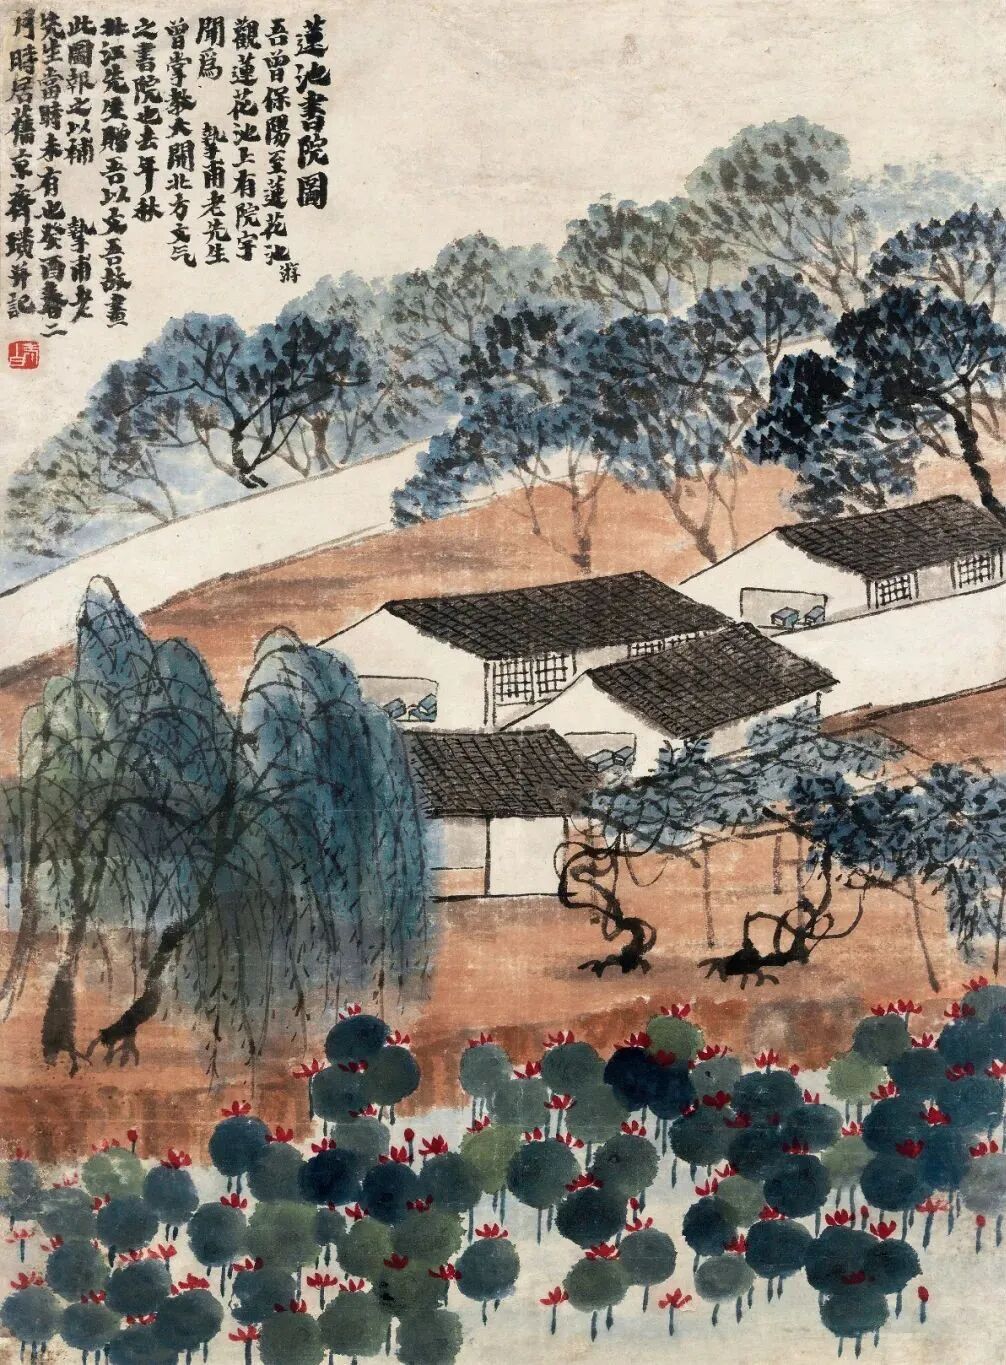 蓮池書院圖
吾曾保陽至蓮花池游
觀蓮花池上有院宇
聞爲 摯甫老先生
曾掌教大開北方文氣
之書院也去年秋
北江先生贈吾以文吾故畫
此圖報之以補 摯甫老
先生當時未有也癸酉春二
月時居舊京齊璜并記